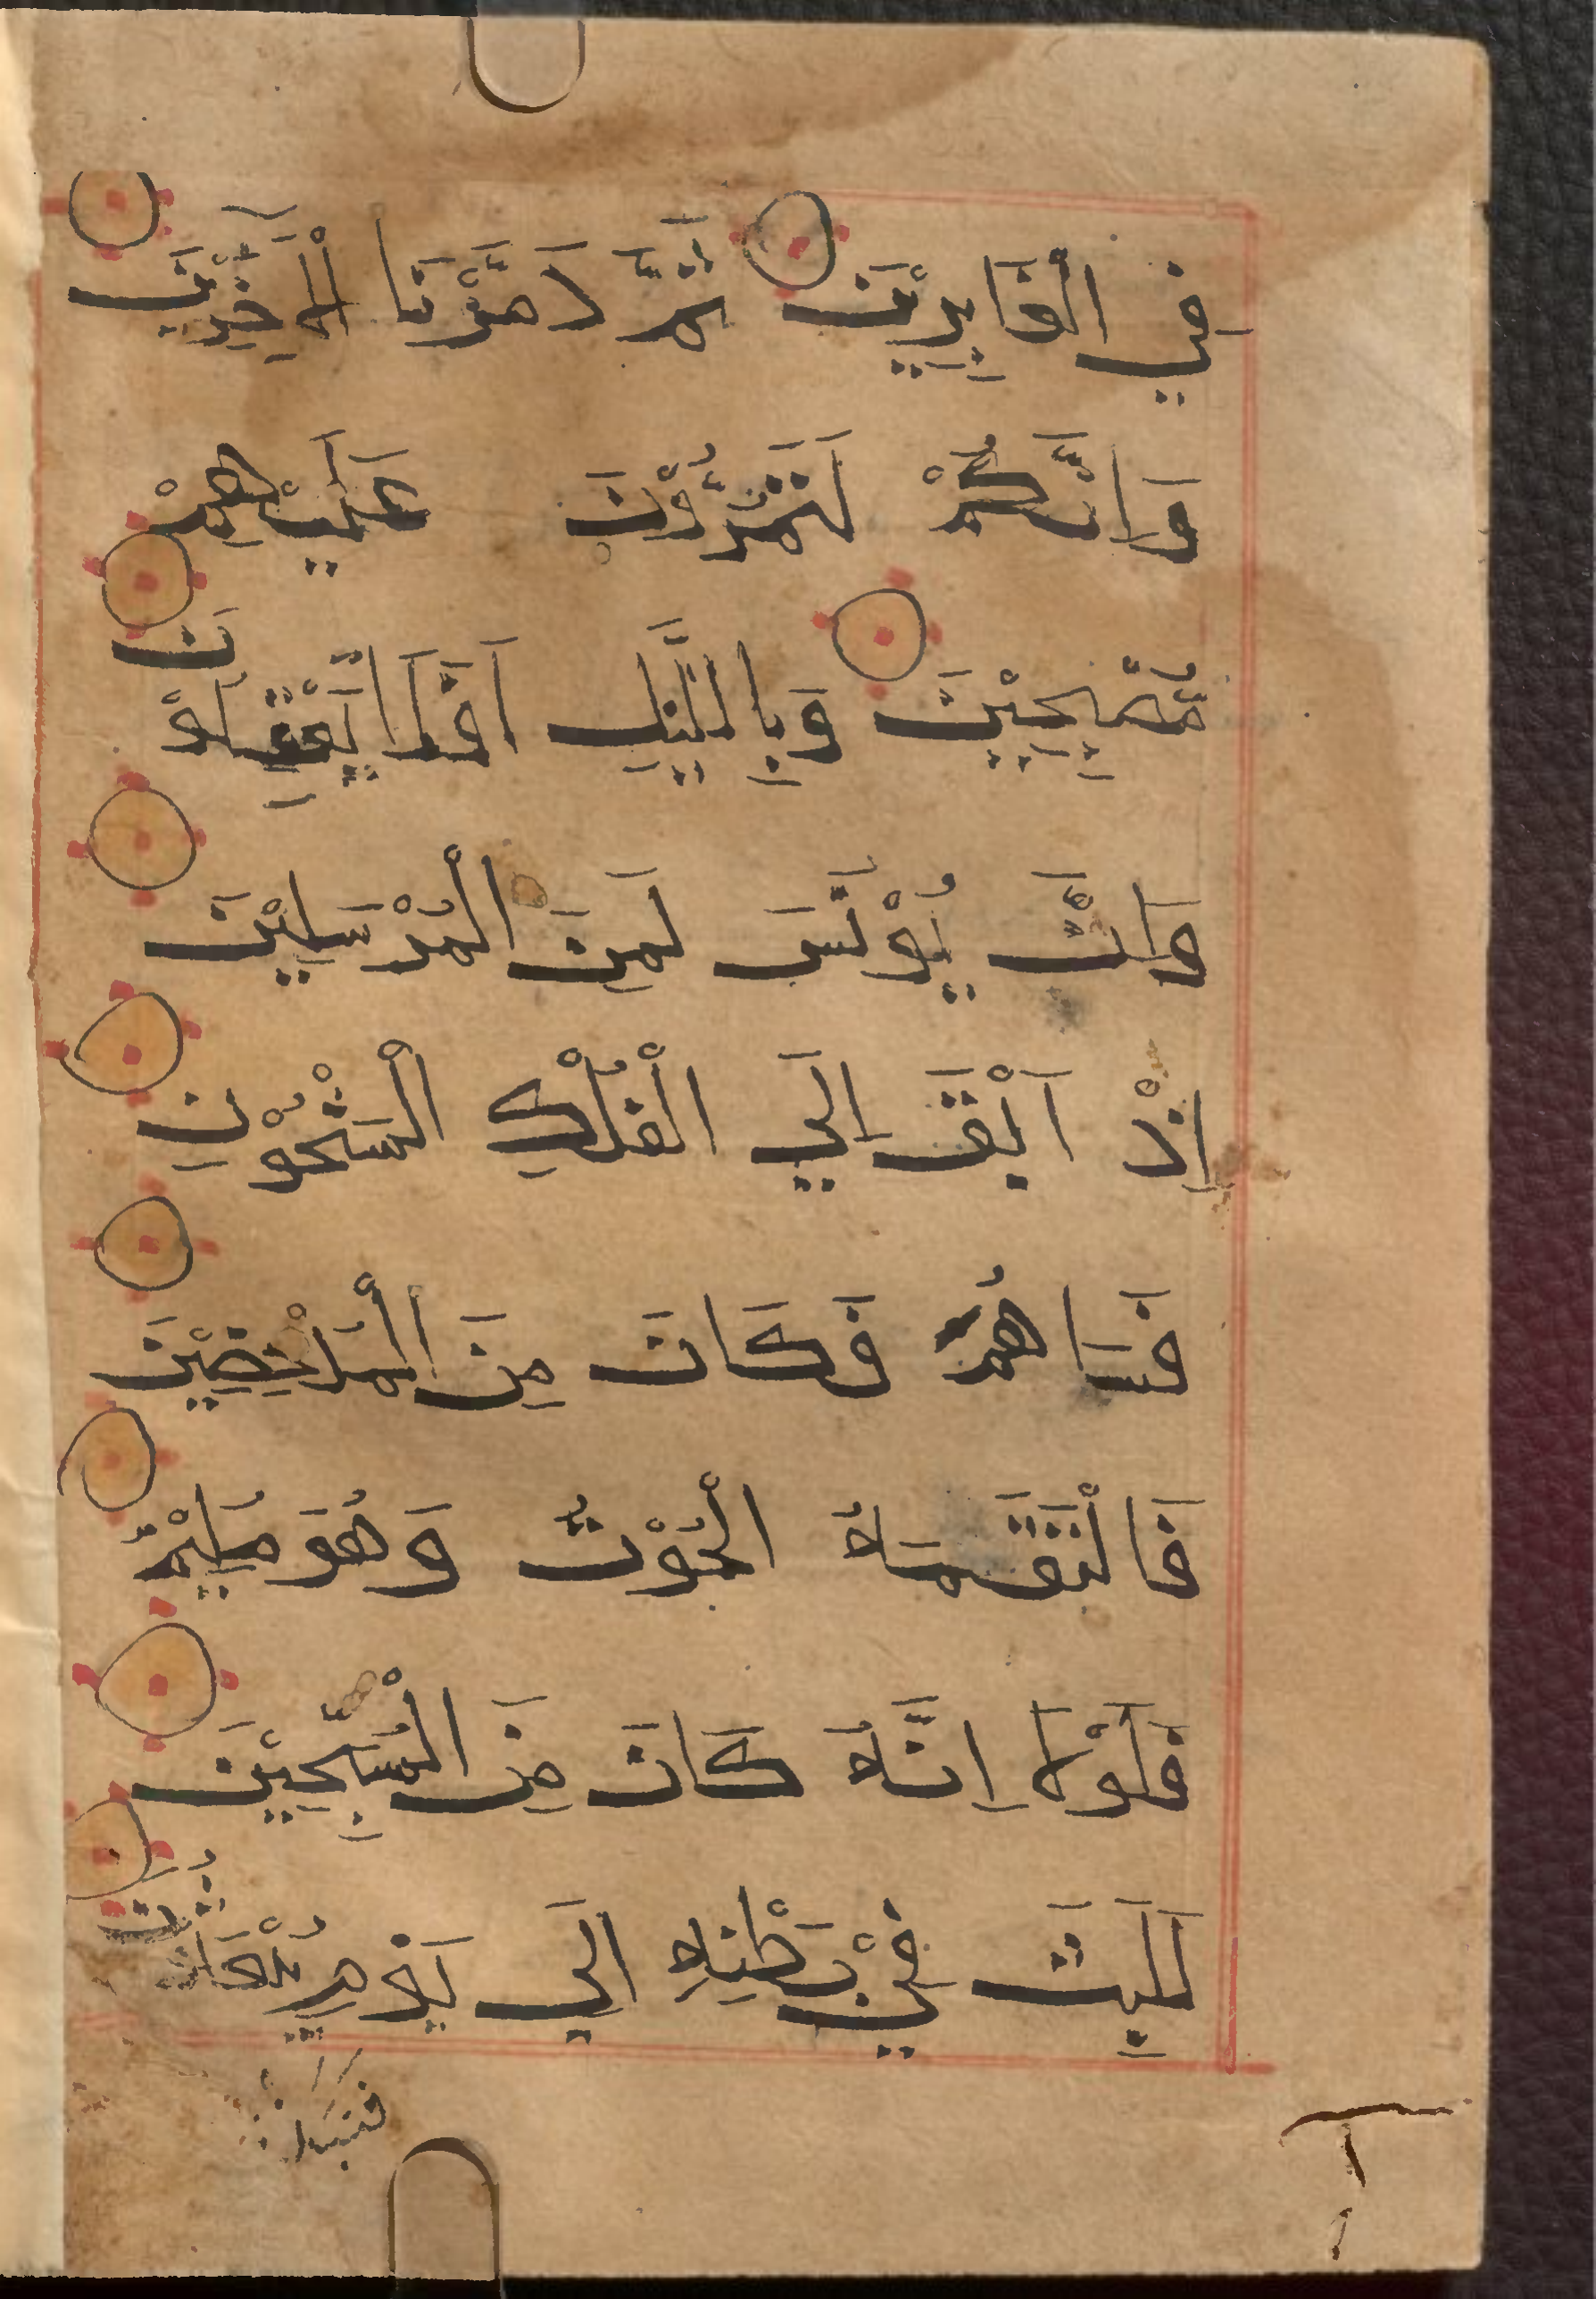 فِي الْغَابِرِيْنَ ثُمَّ دَمَّرْنَا الْاٰخَرِيْنَ
وَاِنَّكُمْ لَتَمُرُّوْنَ عَلَيْهِمْ
مُّصْبِحِيْنَ وَبِالَّيْلِ اَفَلَا تَعْقِلُوْنَ
وَاِنَّ يُوْنُسَ لَمِنَ الْمُرْسَلِيْنَ
اِذْ اَبَقَ اِلَي الْفُلْكِ الْمَشْحُوْنِ
فَسَاهَمَ فَكَانَ مِنَ الْمُدْحَضِيْنَ
فَالْتَقَمَهُ الْحُوْتُ وَهُوَ مُلِيْمٌ
فَلَوْلَا اَنَّهُ كَانَ مِنَ الْمُسَبِّحِيْنَ
لَلَبِثَ فِيْ بَطْنِهِ اِلَي يَوْمِ يُبْعَثُوْنَ
فنبذنه